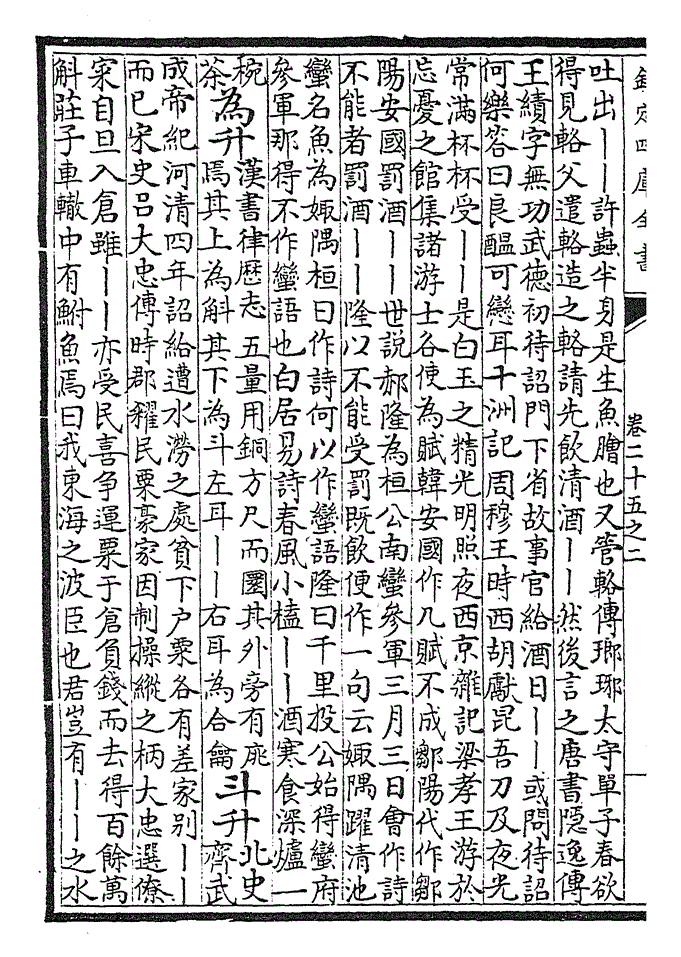 欽定四庫全書
卷二十五之二
吐出｜｜許蟲半身是生魚膾也又管輅傳瑯琊太守單子春欲
得見輅父遣輅造之輅請先飲清酒｜｜然後言之唐書隱逸傳
王績字無功武德初待詔門下省故事官給酒日｜｜或問待詔
何樂答曰良醖可戀耳十洲記周穆王時西胡獻昆吾刀及夜光
常滿杯杯受｜｜是白玉之精光明照夜西京雜記梁孝王游於
忘憂之館集諸游士各使為賦韓安國作几賦不成鄒陽代作鄒
陽安國罰酒｜｜世說郝隆為桓公南蠻參軍三月三日會作詩
不能者罰酒｜｜隆以不能受罰既飲便作一句云娵隅躍清池
蠻名魚為娵隅桓曰作詩何以作蠻語隆曰千里投公始得蠻府
參軍那得不作蠻語也白居易詩春風小榼｜｜酒寒食深爐一
椀
茶
為升
漢書律歷志五量用銅方尺而圜其外旁有庣
焉其上為斛其下為斗左耳｜｜右耳為合龠
斗升
北史
齊武
成帝紀河清四年詔給遭水澇之處貧下户粟各有差家別｜｜
而已宋史呂大忠傳時郡糴民粟豪家因制操縱之柄大忠選僚
寀自旦入倉雖｜｜亦受民喜争運粟于倉負錢而去得百餘萬
斛莊子車轍中有鮒魚焉曰我東海之波臣也君豈有｜｜之水